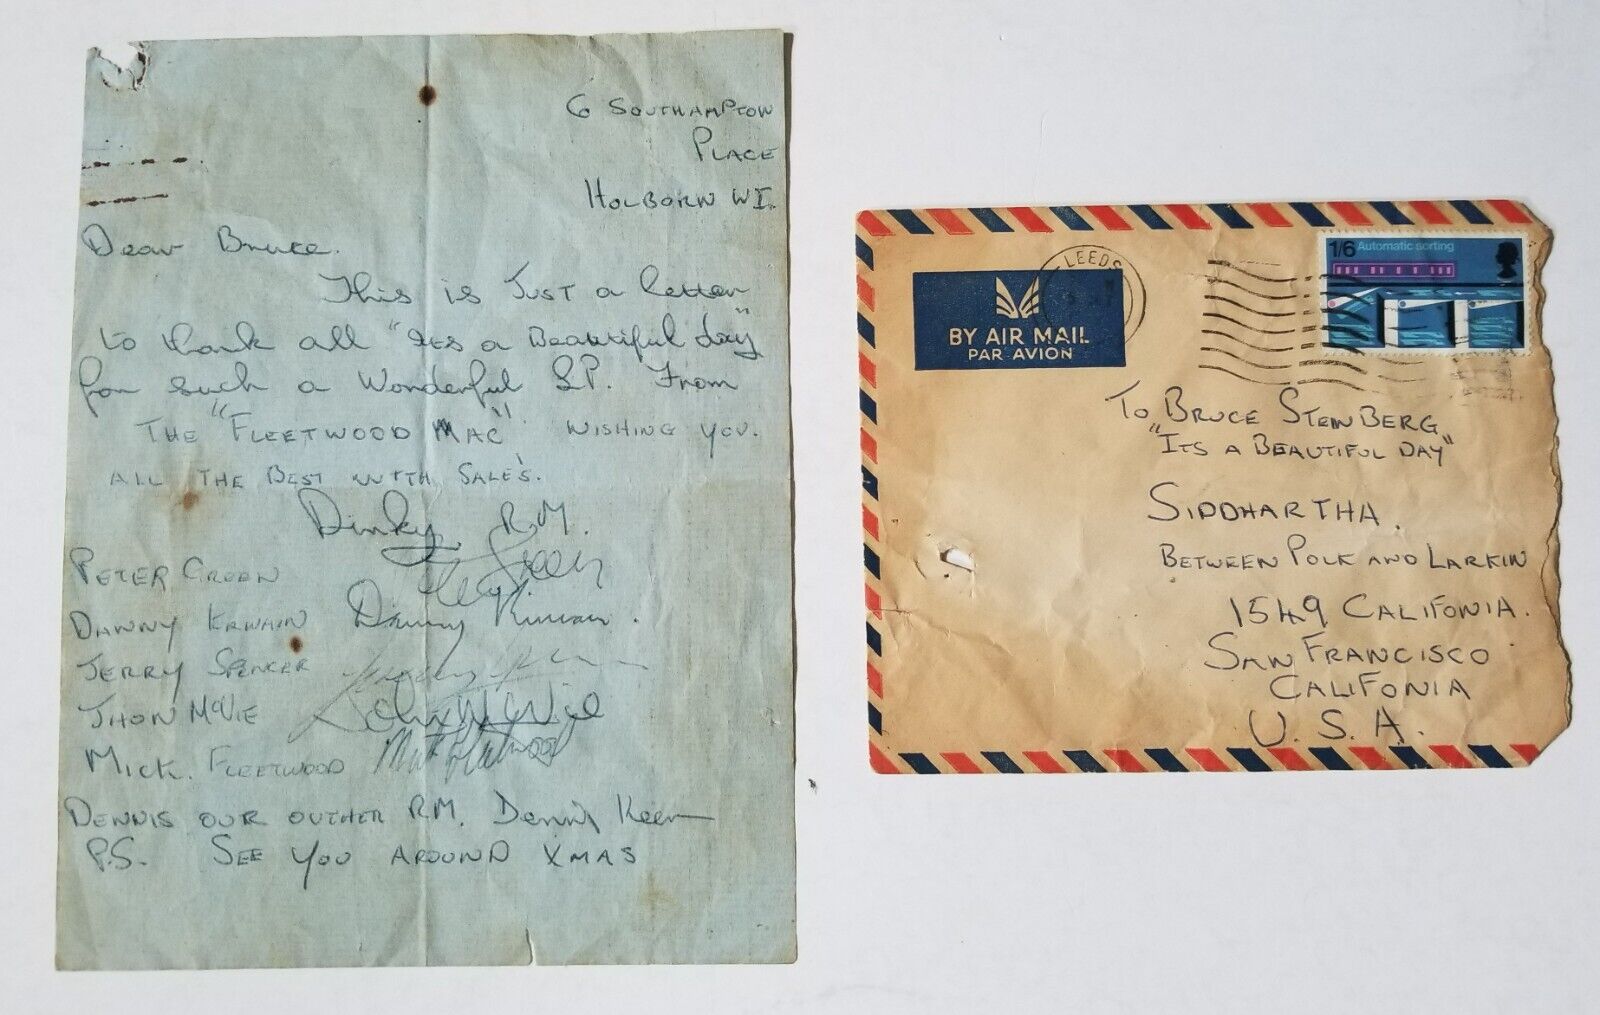 6 SOUTHAMPTON
PLACE
HOLBORN W1.
Dear Bruce.
This is Just a letter
to thank all "Its a Beautiful day"
for such a Wonderful LP. From
THE "FLEETWOOD MAC" WISHING YOU.
ALL THE BEST WITH SALE'S.
Dinky R.M.
PETER GREEN
DANNY KRWAIN Danny Kirwan.
JERRY SPENCER
JHON McVIE John McVie
MICK. FLEETWOOD Mick Fleetwood
DENNIS OUR OUTHER R.M. Dennis Keen
P.S. SEE YOU AROUND XMAS
LEEDS
1/6 Automatic sorting
BY AIR MAIL
PAR AVION
TO BRUCE STEINBERG
"ITS A BEAUTIFUL DAY"
SIDDHARTHA.
BETWEEN POLK AND LARKIN
1549 CALIFONIA.
SAN FRANCISCO
CALIFONIA
U.S.A.